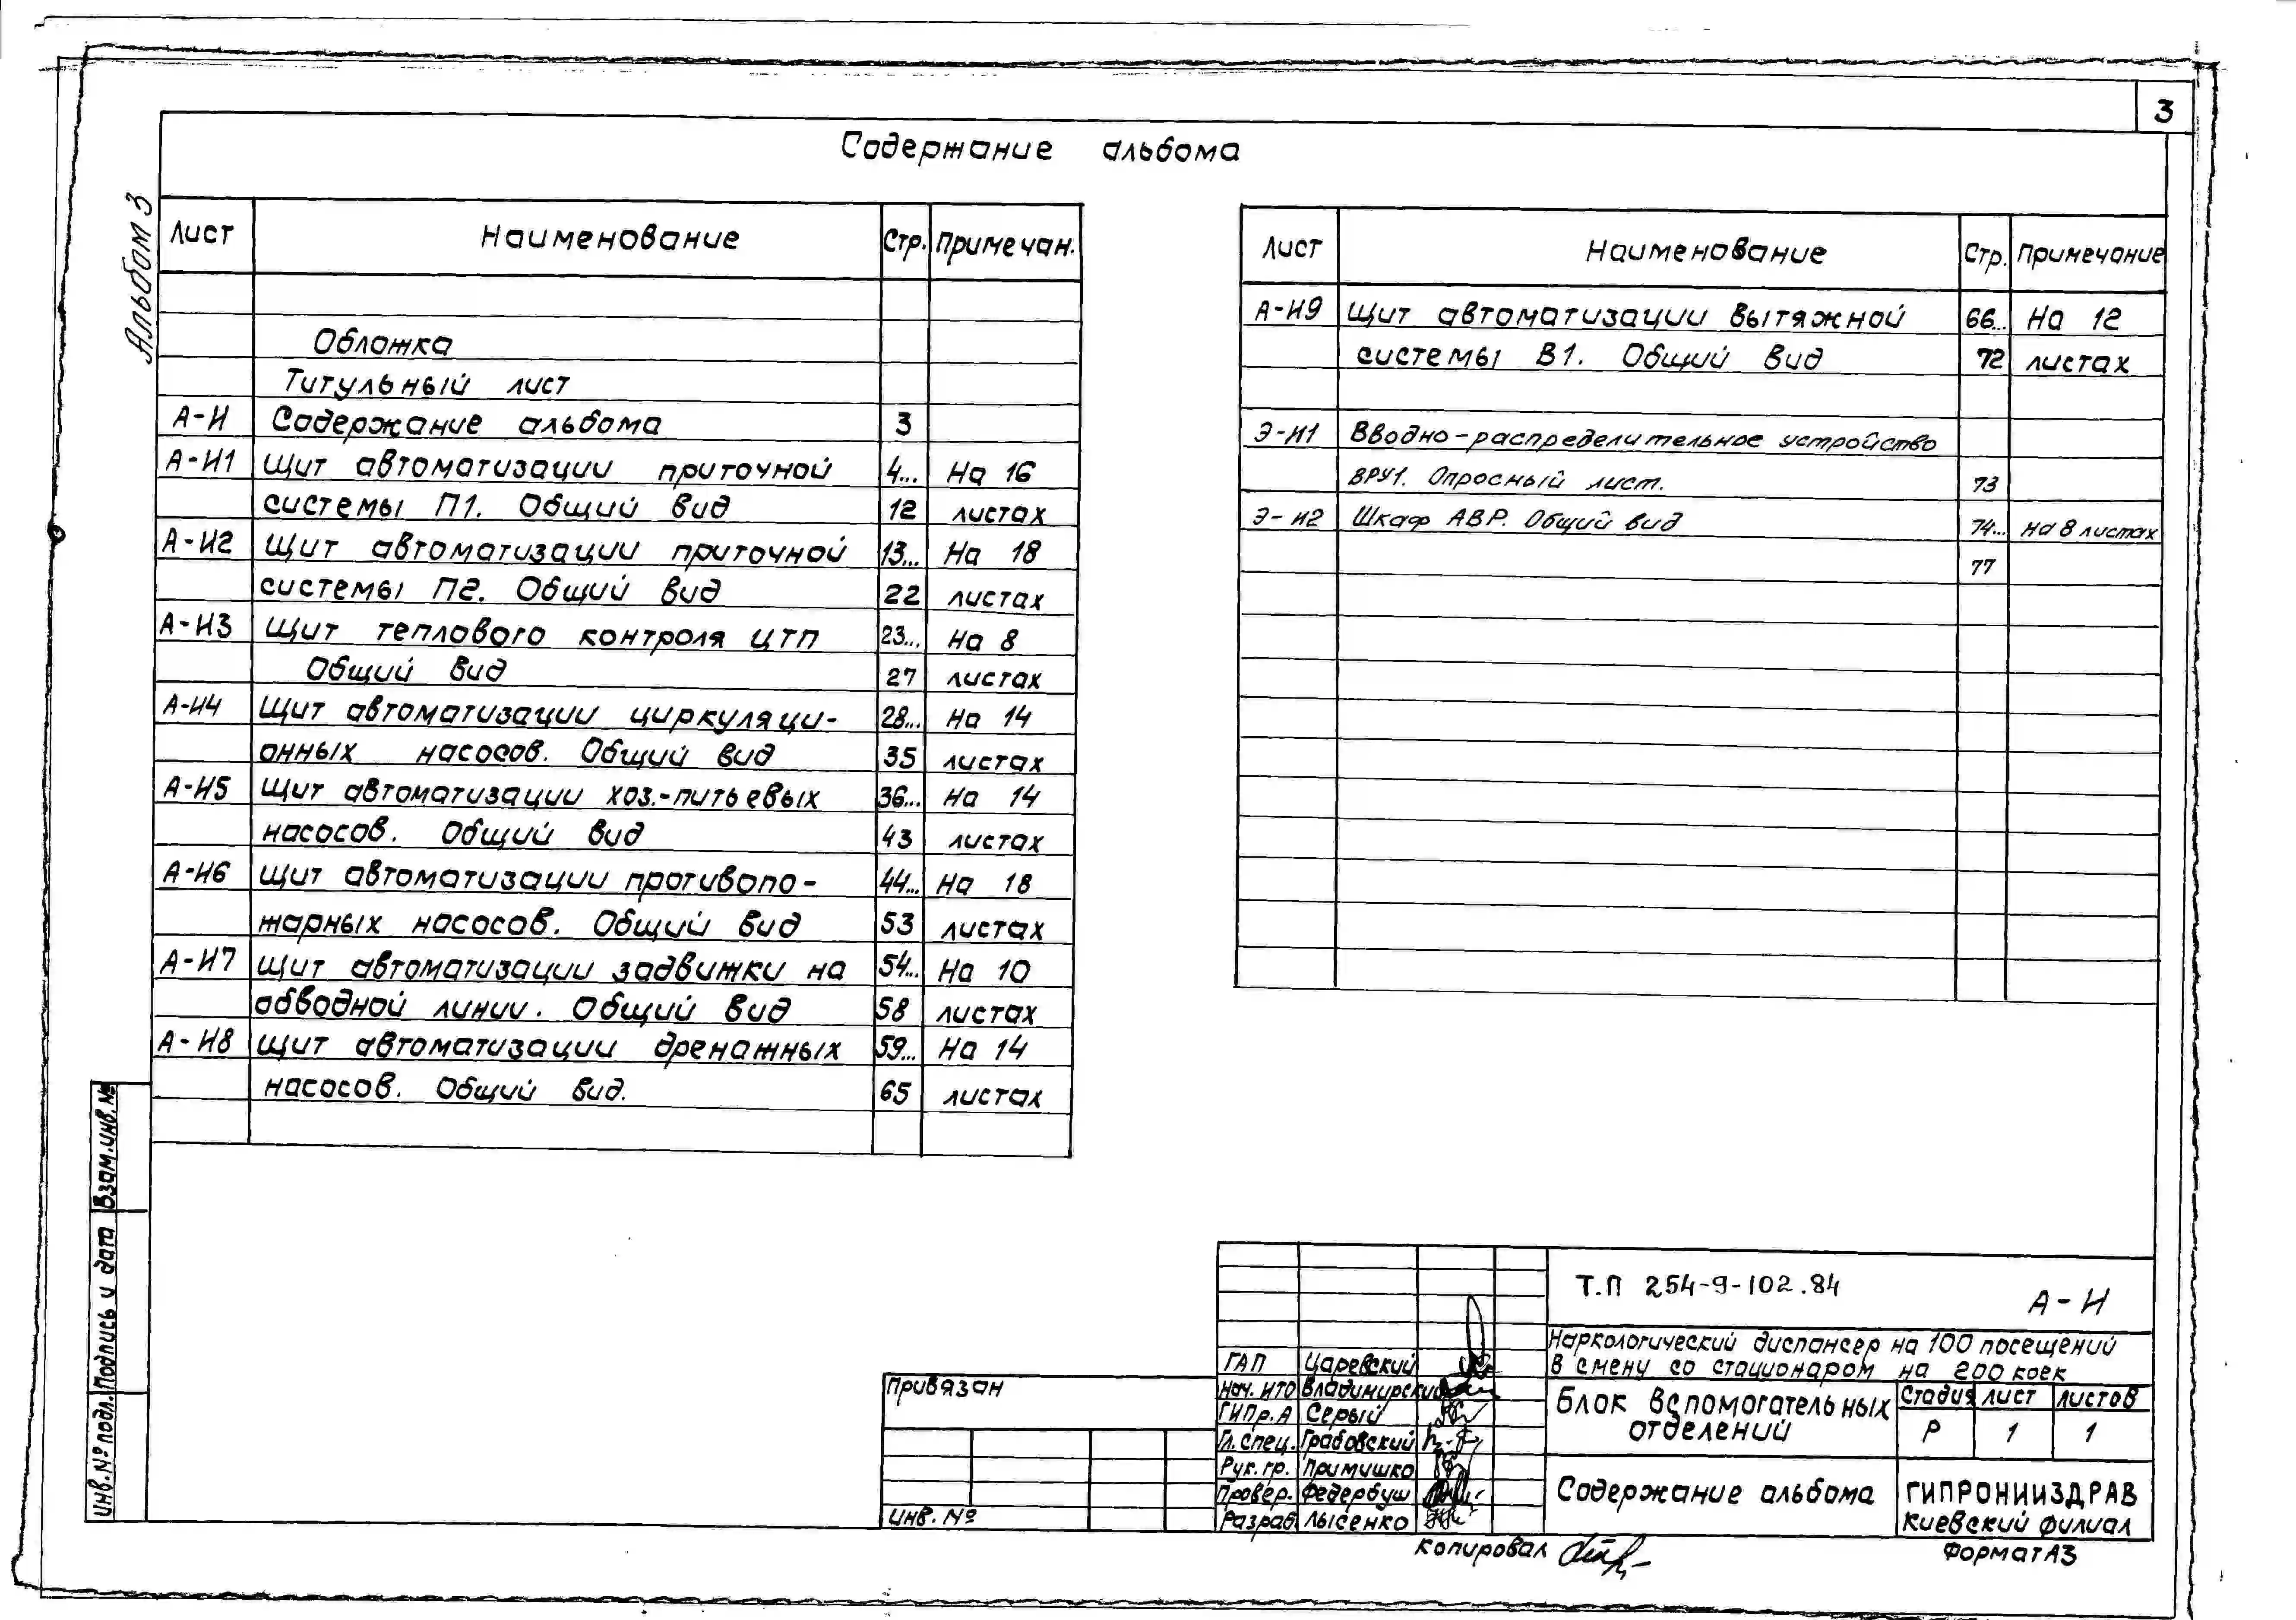 3
Содержание альбома
Альбом 3
Лист Наименование Стр. Примечан.
Обложка
Титульный лист
А-И Содержание альбома 3
А-И1 Щит автоматизации приточной 4... На 16
системы П1. Общий вид 12 листах
А-И2 Щит автоматизации приточной 13... На 18
системы П2. Общий вид 22 листах
А-И3 Щит теплового контроля ЦТП 23... На 8
Общий вид 27 листах
А-И4 Щит автоматизации циркуляци- 28... На 14
онных насосов. Общий вид 35 листах
А-И5 Щит автоматизации хоз.-питьевых 36... На 14
насосов. Общий вид 43 листах
А-И6 Щит автоматизации противопо- 44... На 18
жарных насосов. Общий вид 53 листах
А-И7 Щит автоматизации задвижки на 54... На 10
обводной линии. Общий вид 58 листах
А-И8 Щит автоматизации дренажных 59... На 14
насосов. Общий вид. 65 листах
Лист Наименование Стр. Примечание
А-И9 Щит автоматизации вытяжной 66... На 12
системы В1. Общий вид 72 листах
Э-И1 Вводно-распределительное устройство
ВРУ1. Опросный лист. 73
Э-И2 Шкаф АВР. Общий вид 74... на 8 листах
77
Взам.инв.№
Подпись и дата
Инв.№ подл.
Привязан
Инв. №
ГАП Царевский
Нач. ИТО Владимирский
ГИПр.А Серый
Гл. спец. Грабовский
Рук. гр. Примушко
Провер. Федербуш
Разраб. Лысенко
Т.П 254-9-102.84 А-И
Наркологический диспансер на 100 посещений
в смену со стационаром на 200 коек
Блок вспомогательных
отделений
Стадия Лист Листов
Р 1 1
Содержание альбома
ГИПРОНИИЗДРАВ
Киевский филиал
Копировал
Формат А3